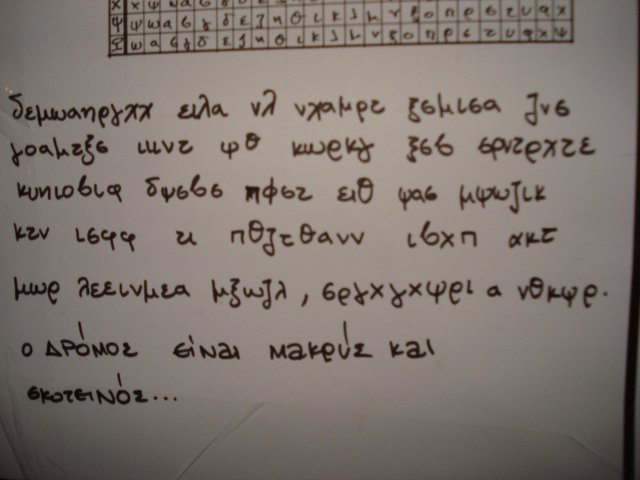 Ψ ψ ω α β γ δ ε ζ η θ ι κ λ μ ν ξ ο π ρ σ τ υ φ χ
Ω ω α β γ δ ε ζ η θ ι κ λ μ ν ξ ο π ρ σ τ υ φ χ ψ
δεμωαπργχχ ειλα νλ νχαμρτ ξσμισα ζνσ
γοαμτξσ ικντ φθ κωρκγ ξσβ σρντρχτε
κυπιοβιφ δψσβσ πφστ ειθ ψασ μψωζικ
κτν ισφφ τι πθζτθανν ιβχπ ακτ
μωρ λεεινμεα μξωζλ, σργχγχψρι α νθκψρ.
Ο ΔΡΌΜΟΣ ΕΊΝΑΙ ΜΑΚΡΎΣ ΚΑΙ
ΣΚΟΤΕΙΝΌΣ...